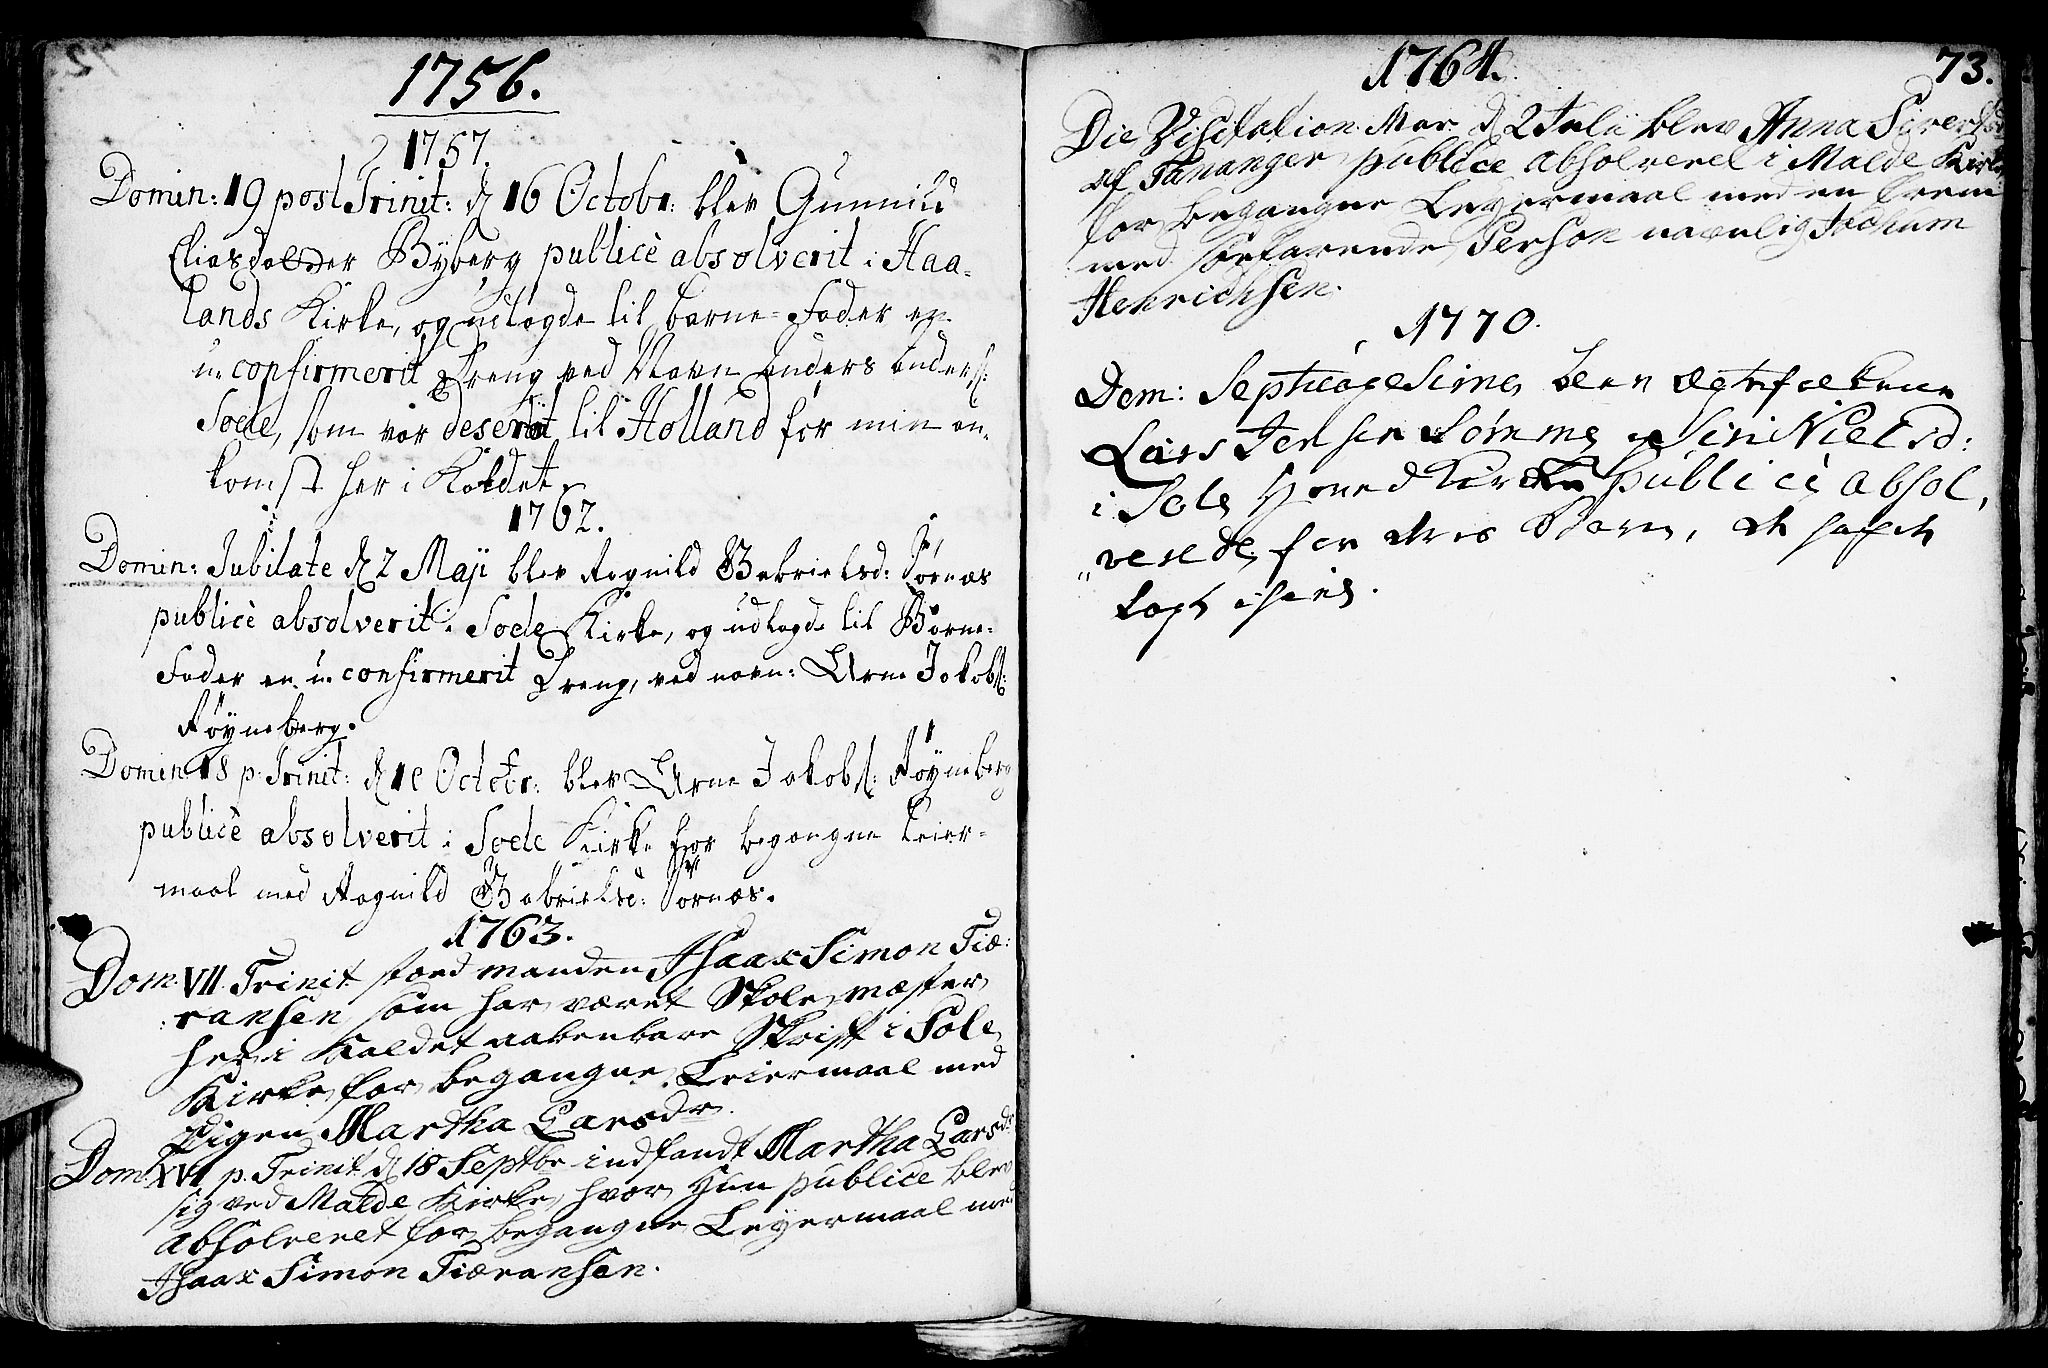 1756.
1757.
Domin: 19 post Trinit: d 16 Octobr: blev Gunnild
Eliasdotter Byberg publicè absolverit i Haa-
lands Kirke, og udlagde til barne-Fader en
u-confirmerit Dreng ved Navn Anders Anders:
Soele, som var deserert til Holland før min an-
komst her i Kaldet.
1762.
Domin: Jubilate d 2 Maji blev Ragnild Gabrielsd: Sørnæs
publicè absolverit i Soele Kirke, og udlagde til Barne-
Fader en u-confirmerit Dreng, ved navn: Arne Jakobs:
Røyneberg.
Domin: 18 p. Trinit: d 10 Octobr: blev Arne Jakobs: Røyneberg
publicè absolverit i Soele Kirke for begangne Leier-
maal med Ragnild Gabrielsd: Sørnæs.
1763.
Dom. VII. Trinit. stoed manden Isaax Simon Tiæ:
:ransen som har været Skolemæster
her i Kaldet aabenbare Skrift i Sole
Kirke for begangne Leiermaal med
Pigen Martha Larsdr.
Dom XVI p. Trinit. d 18 Septbr indfandt Martha Larsdr
sig ved Malde Kirke, hvor Hun publice blev
absolveret for begangne Leyermaal med
Isaax Simon Tiæransen.
73.
1764.
Die Visitation. Mar. d 2 Julii blev Anna Siversdr
af Tananger publice absolveret i Malde Kirke
for begangne Leyermaal med en frem
med søefarende Person navnlig Jochum
Henrichsen.
1770.
Dom: Septuagesime, blev Ægtefolkene
Lars Jensen Sømme og Siri Nielsd:
i Sole Hovedkirke publicè absol,
"verede, for deres Barn, at
lagt ihiel.